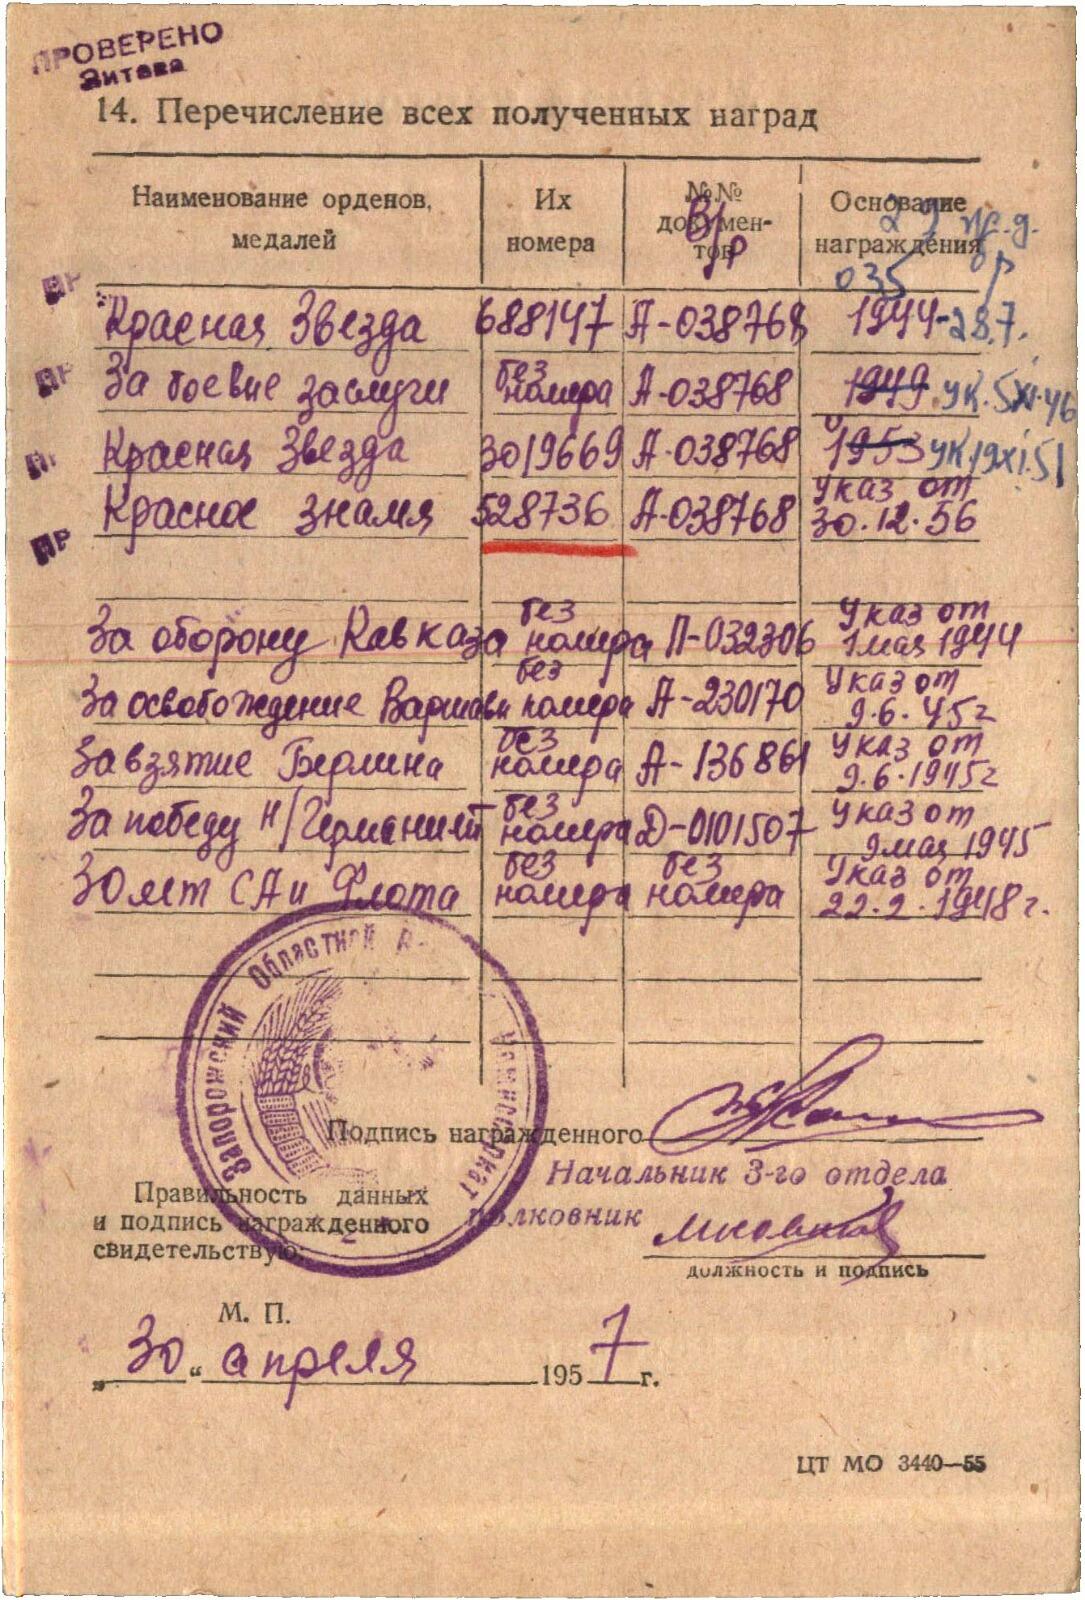 ПРОВЕРЕНО
Зитева
14. Перечисление всех полученных наград
Наименование орденов, медалей Их номера №№ документов Основание награждения
В/р
29 пр.д.
035 ор
ПР
Красная Звезда 688147 А-038768 1944-28.7.
ПР
За боевие заслуги без номера А-038768 1949 Ук. 5 XI. 46
ПР
Красная Звезда 3019669 А-038768 1953 Ук 19 XI. 51
Красное знамя 528736 А-038768 Указ от 30.12.56
ПР
За оборону Кавказа без номера П-032306 Указ от 1 мая 1944
За освобождение Варшави без номера А-230170 Указ от 9.6.45г
За взятие Берлина без номера А-136861 Указ от 9.6.1945г
За победу н/Германией без номера Д-0101507 Указ от 9 мая 1945
30 лет СА и Флота без номера без номера Указ от 22.2.1948г.
Запорожский Областной Военкомиссариат
Подпись награжденного
Начальник 3-го отдела
полковник
Правильность данных
и подпись награжденного
свидетельствую:
должность и подпись
М. П.
„30“ апреля 1957 г.
ЦТ МО 3440—55